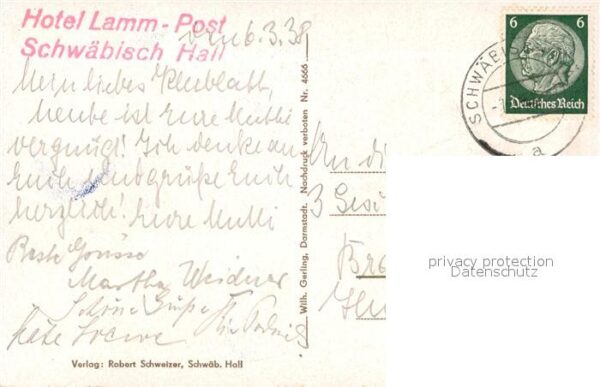 Hotel Lamm-Post
Schwäbisch Hall
den 6.3.38
Mein liebes Kleeblatt,
heute ist Eure Mutti
vergnügt! Ich denke an
Euch und grüße Euch
herzlich! Eure Mutti
Beste Grüsse
Martha Weidner
Schöne Grüße
Käte
Verlag: Robert Schweizer, Schwäb. Hall
Wilh. Gerling, Darmstadt. Nachdruck verboten Nr. 4666
6 6
Deutsches Reich
SCHWÄBI
a
An di
3 Gesch
privacy protection
Datenschutz